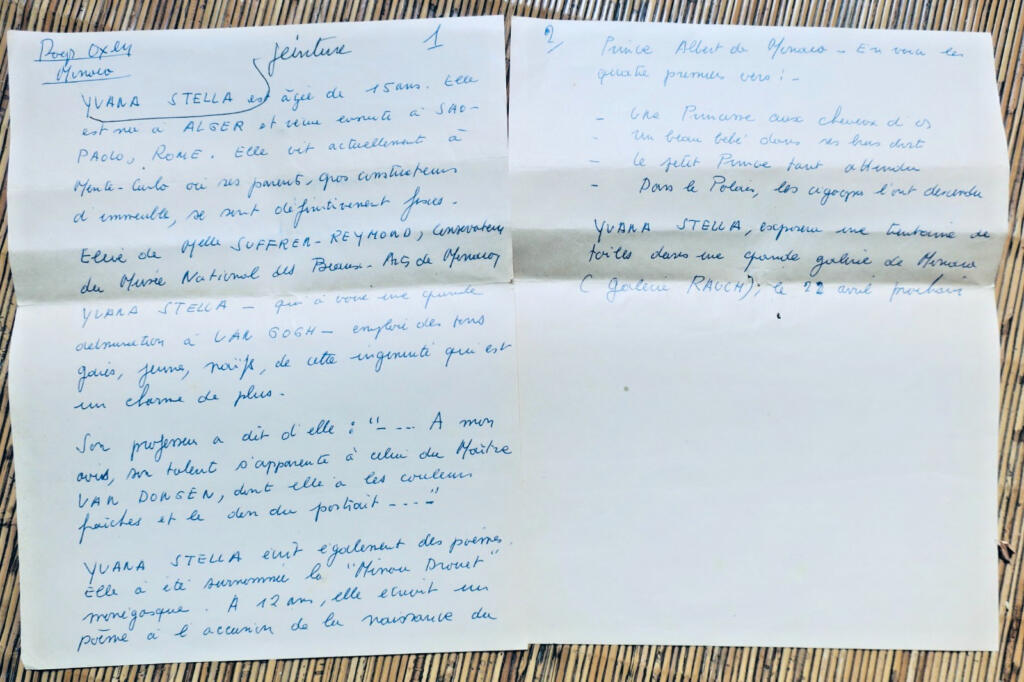 Monaco
peinture
1
YVANA STELLA est âgée de 15 ans. Elle
est née à ALGER et vécue ensuite à SAO-
PAOLO, ROME. Elle vit actuellement à
Monte-Carlo où ses parents, gros constructeurs
d'immeuble, se sont définitivement fixés.
Elève de Melle SUFFREN-REYMOND, Conservateur
du Musée National des Beaux-Arts de Monaco,
YVANA STELLA - qui à voue une grande
admiration à VAN GOGH - emploie des tons
gaies, jeunes, naïfs, de cette ingénuité qui est
un charme de plus.
Son professeur a dit d'elle : "---- A mon
avis, son talent s'apparente à celui du Maître
VAN DONGEN, dont elle a les couleurs
fraîches et le don du portrait ----"
YVANA STELLA écrit également des poèmes.
Elle à été surnommée la "Minou Drouet"
monégasque. A 12 ans, elle écrivit un
poème à l'occasion de la naissance du
2/
Prince Albert de Monaco - En voici les
quatre premiers vers :-
- Une Princesse aux cheveux d'or
- Un beau bébé dans ses bras dort
- Le petit Prince tant attendu
- Dans le Palais, les cigognes l'ont descendu
YVANA STELLA, exposera une trentaine de
toiles dans une grande galerie de Monaco
(Galerie RAUCH), le 22 avril prochain